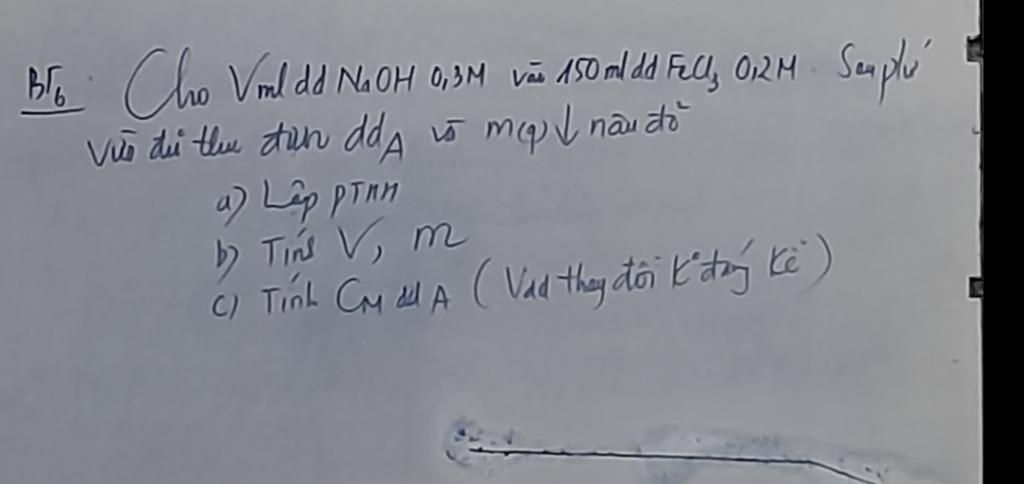 BT6: Cho V ml dd NaOH 0,3M vào 150 ml dd FeCl3 0,2M. Sau pứ
vừa đủ thu được ddA và m(g)↓ nâu đỏ
a) Lập PTHH
b) Tính V, m
c) Tính CM dd A (Vdd thay đổi k° đáng kể)